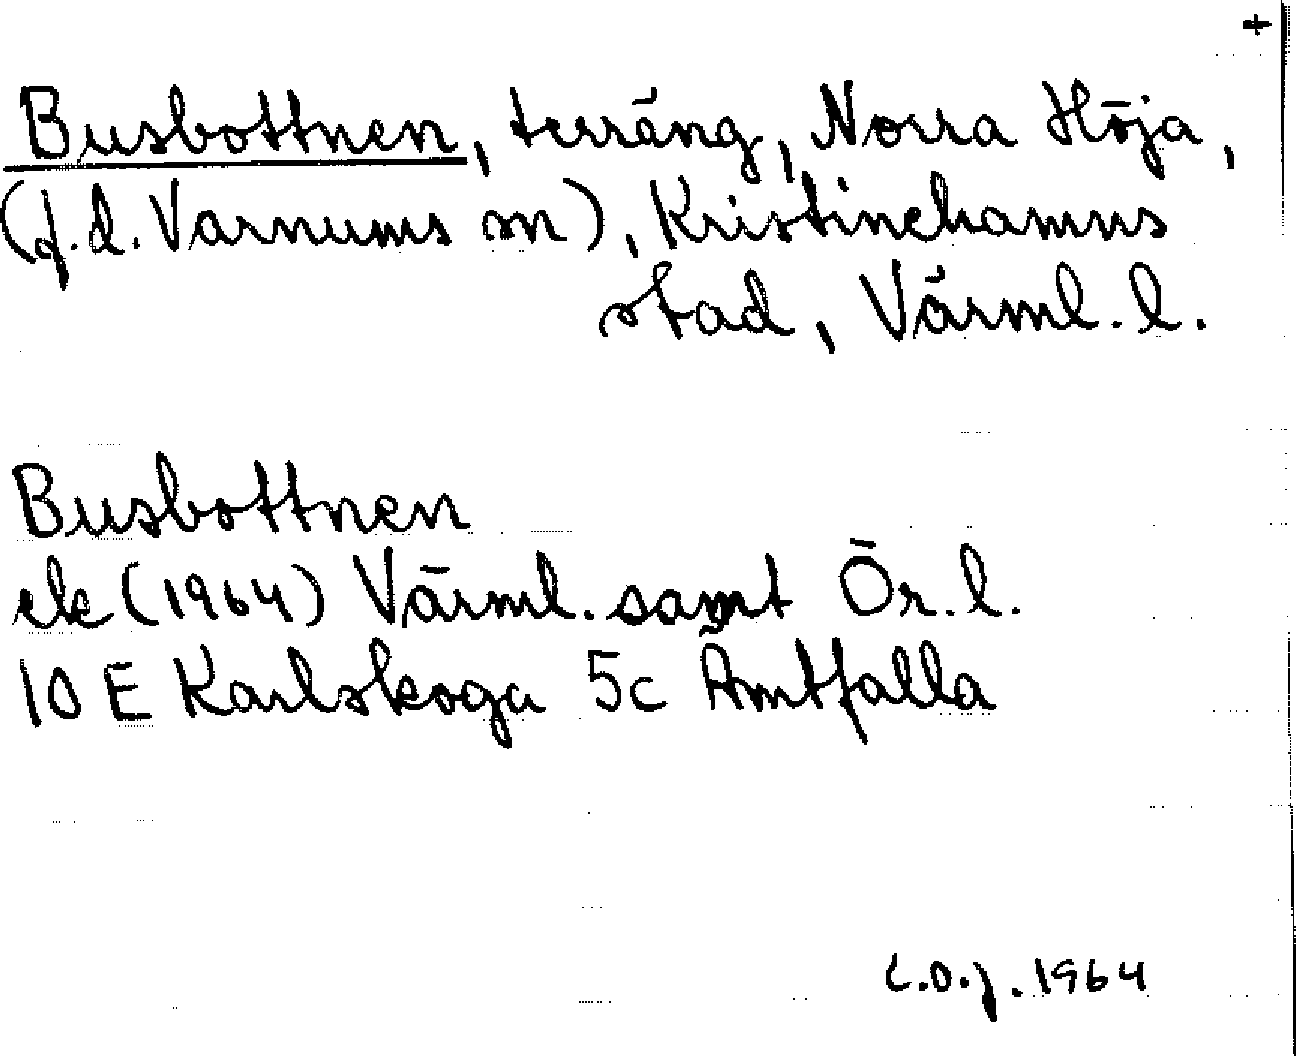 +
Busbottnen, terräng, Norra Höja,
(f.d. Varnums sn), Kristinehamns
stad, Värml. l.
Busbottnen
ek (1964) Värml. samt Ör. l.
10 E Karlskoga 5c Åmtfalla
L.O.J. 1964